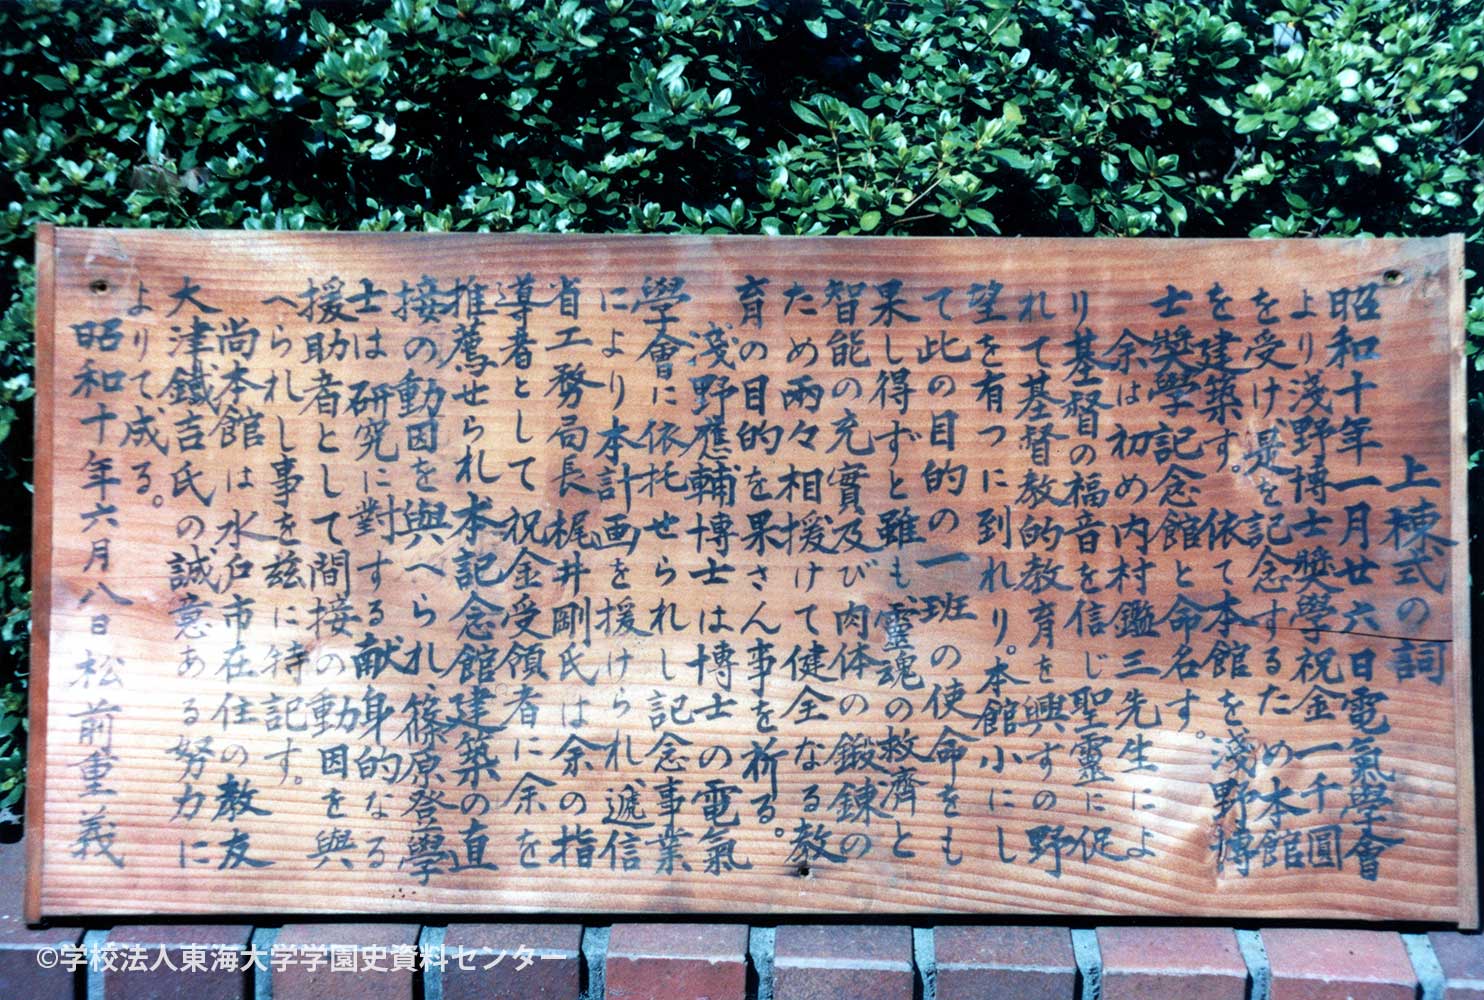 上棟式の詞
昭和十年一月廿六日電氣學會
より淺野博士獎學祝金一千圓
を受け是を記念するため本館
を建築す。依て本館を淺野博
士獎學記念館と命名す。
余は初め内村鑑三先生によ
り基督の福音を信じ聖靈に促
れて基督教的教育を興すの野
望を有つに到れり。本館小にし
て此の目的の一班の使命をも
果し得ずと雖も靈魂の救濟と
智能の充實及び肉体の鍛錬の
ため兩々相援けて健全なる教
育の目的を果さん事を祈る。
淺野應輔博士は博士の電氣
學會に依托せられし記念事業
により本計画を援けられ遞信
省工務局長梶井剛氏は余の指
導者として祝金受領者に余を
推薦せられ本記念館建築の直
接の動因を與へられ篠原登學
士は研究に對する献身的なる
援助者として間接の動因を與
へられし事を茲に特記す。
尚本館は水戸市在住の教友
大津鐵吉氏の誠意ある努力に
よりて成る。
昭和十年六月八日松前重義
©学校法人東海大学学園史資料センター